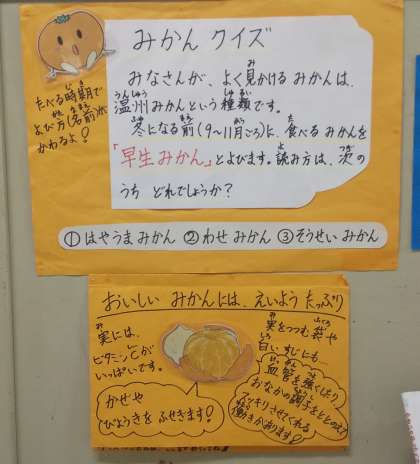 みかん クイズ
たべる時期で
よび方(名前)が
かわるよ!
みなさんが、よく見かける みかんは、
温州みかんという種類です。
冬になる前(9〜11月ごろ)に、食べる みかんを
「早生みかん」とよびます。読み方は、次の
うち どれでしょうか?
①はやうま みかん ②わせ みかん ③そうせい みかん
おいしい みかんには、えいよう たっぷり
実には、
ビタミンCが
いっぱいです。
かぜや
びょうきを ふせぎます!
実をつつむ袋や
白い すじにも
血管を強くしたり
おなかの調子をととのえ
スッキリさせてくれる
働きがあります!